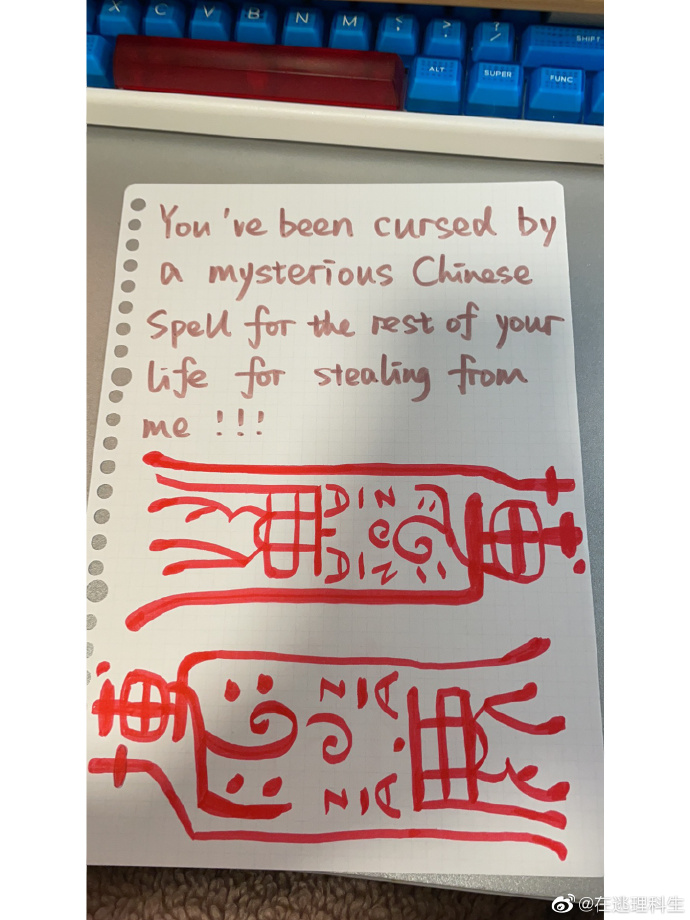 X C V B N M < > ?
, . /
SHIFT
ALT SUPER FUNC
You've been cursed by
a mysterious Chinese
Spell for the rest of your
life for stealing from
me !!!
@在逃理科生